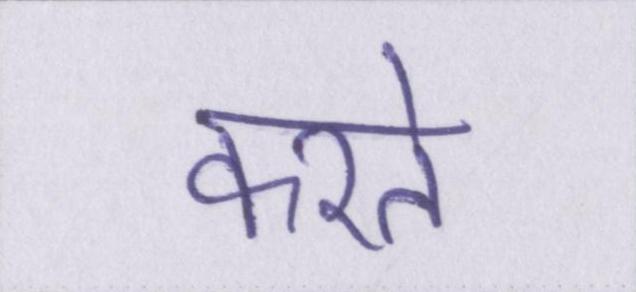 करते